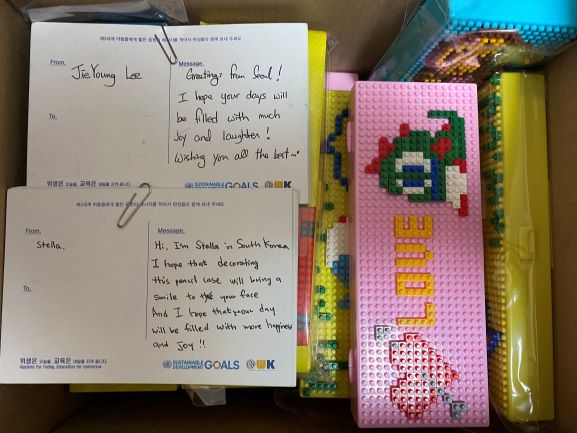 제3세계 아동들에게 짧은 응원의 메시지를 적어서 완성품과 함께 보내 주세요
From,
JieYoung Lee
Message,
Greetings from Seoul!
I hope your days will
be filled with much
Joy and laughter!
Wishing you all the best~
위생은 오늘을, 교육은 내일을 지켜 줍니다.
SUSTAINABLE
DEVELOPMENT GOALS
WK
From,
Stella.
To,
Message,
Hi, I'm Stella in South Korea
I hope that decorating
this pencil case will bring a
smile to your face
And I hope that your day
will be filled with more happiness
and Joy!!
위생은 오늘을, 교육은 내일을 지켜 줍니다.
Hygiene for Today, Education for tomorrow
SUSTAINABLE
DEVELOPMENT GOALS
WK
LOVE